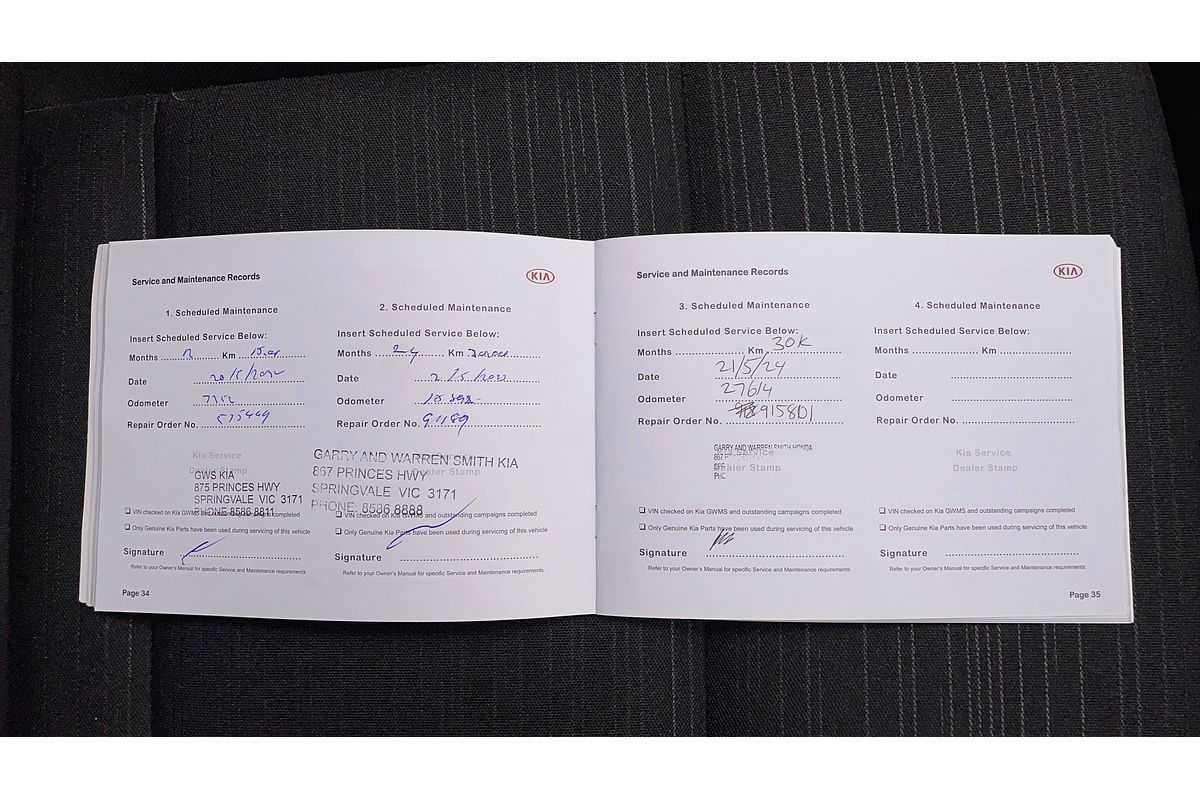 Service and Maintenance Records
KIA
1. Scheduled Maintenance
Insert Scheduled Service Below:
Months Km
Date
Odometer
Repair Order No. 575449
Kia Service
Dealer Stamp
GWS KIA
875 PRINCES HWY
SPRINGVALE VIC 3171
PHONE 8586 8811
VIN checked on Kia GWMS and outstanding campaigns completed
Only Genuine Kia Parts have been used during servicing of this vehicle
Signature
Refer to your Owner's Manual for specific Service and Maintenance requirements
Page 34
2. Scheduled Maintenance
Insert Scheduled Service Below:
Months 24 Km
Date
Odometer
Repair Order No.
Dealer Stamp
GARRY AND WARREN SMITH KIA
867 PRINCES HWY
SPRINGVALE VIC 3171
PHONE: 8586 8888
VIN checked on Kia GWMS and outstanding campaigns completed
Only Genuine Kia Parts have been used during servicing of this vehicle
Signature
Refer to your Owner's Manual for specific Service and Maintenance requirements
Service and Maintenance Records
KIA
3. Scheduled Maintenance
Insert Scheduled Service Below:
Months Km 30K
Date 21/5/24
Odometer 27614
Repair Order No.
GARRY AND WARREN SMITH HONDA
867
Kia Service
Dealer Stamp
VIN checked on Kia GWMS and outstanding campaigns completed
Only Genuine Kia Parts have been used during servicing of this vehicle
Signature
Refer to your Owner's Manual for specific Service and Maintenance requirements
4. Scheduled Maintenance
Insert Scheduled Service Below:
Months Km
Date
Odometer
Repair Order No.
Kia Service
Dealer Stamp
VIN checked on Kia GWMS and outstanding campaigns completed
Only Genuine Kia Parts have been used during servicing of this vehicle
Signature
Refer to your Owner's Manual for specific Service and Maintenance requirements
Page 35